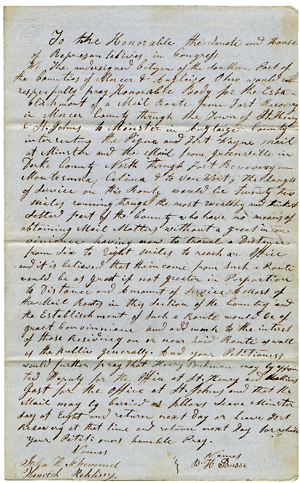 To the Honorable the Senate and House
of Representatives in Congress
We the undersigned Citizens of the Southern Part of
the Counties of Mercer & Auglaize Ohio would
respectfully pray Honorable Body for the Esta
blishment of a Mail Route from Fort Recovery
in Mercer County through the Town of St Henry
& St Johns to Minster in Auglaize County
intersecting the Piqua and Fort Wayne Mail
at Minster and the Mail from Greenville in
Darke County North through Fort Recovery
Montezuma, Celina & to Van Wert. The length
of Service in this Route would be Twenty two
miles running through the most wealthy and thickest
Settled part of the County who have no means of
obtaining Mail Matters without a great incon
vinience having now to travel a Distance
from six to Eight miles to reach an office
and it is believed that the income from such a Route
would be as great if not greater in Proportion
to Distance and amount of Service as most of
the Mail Routs in this Section of the Country and
the Establishment of such a Route would be of
great Convinience and add much to the interest
of those Residing on or near said Route as well
as the public generally And your Petitioners
would further pray that Henry Beckman may be appoin
ted Deputy for the Office at St Henry and
for the Office at St Johns and that the
Mail may be Carried as follows Leave Minster
day at Eight and return next day or leave Fort
Recovery at that time and return next day for which
your Petitioners humble Pray
Names
Names
B H Busse